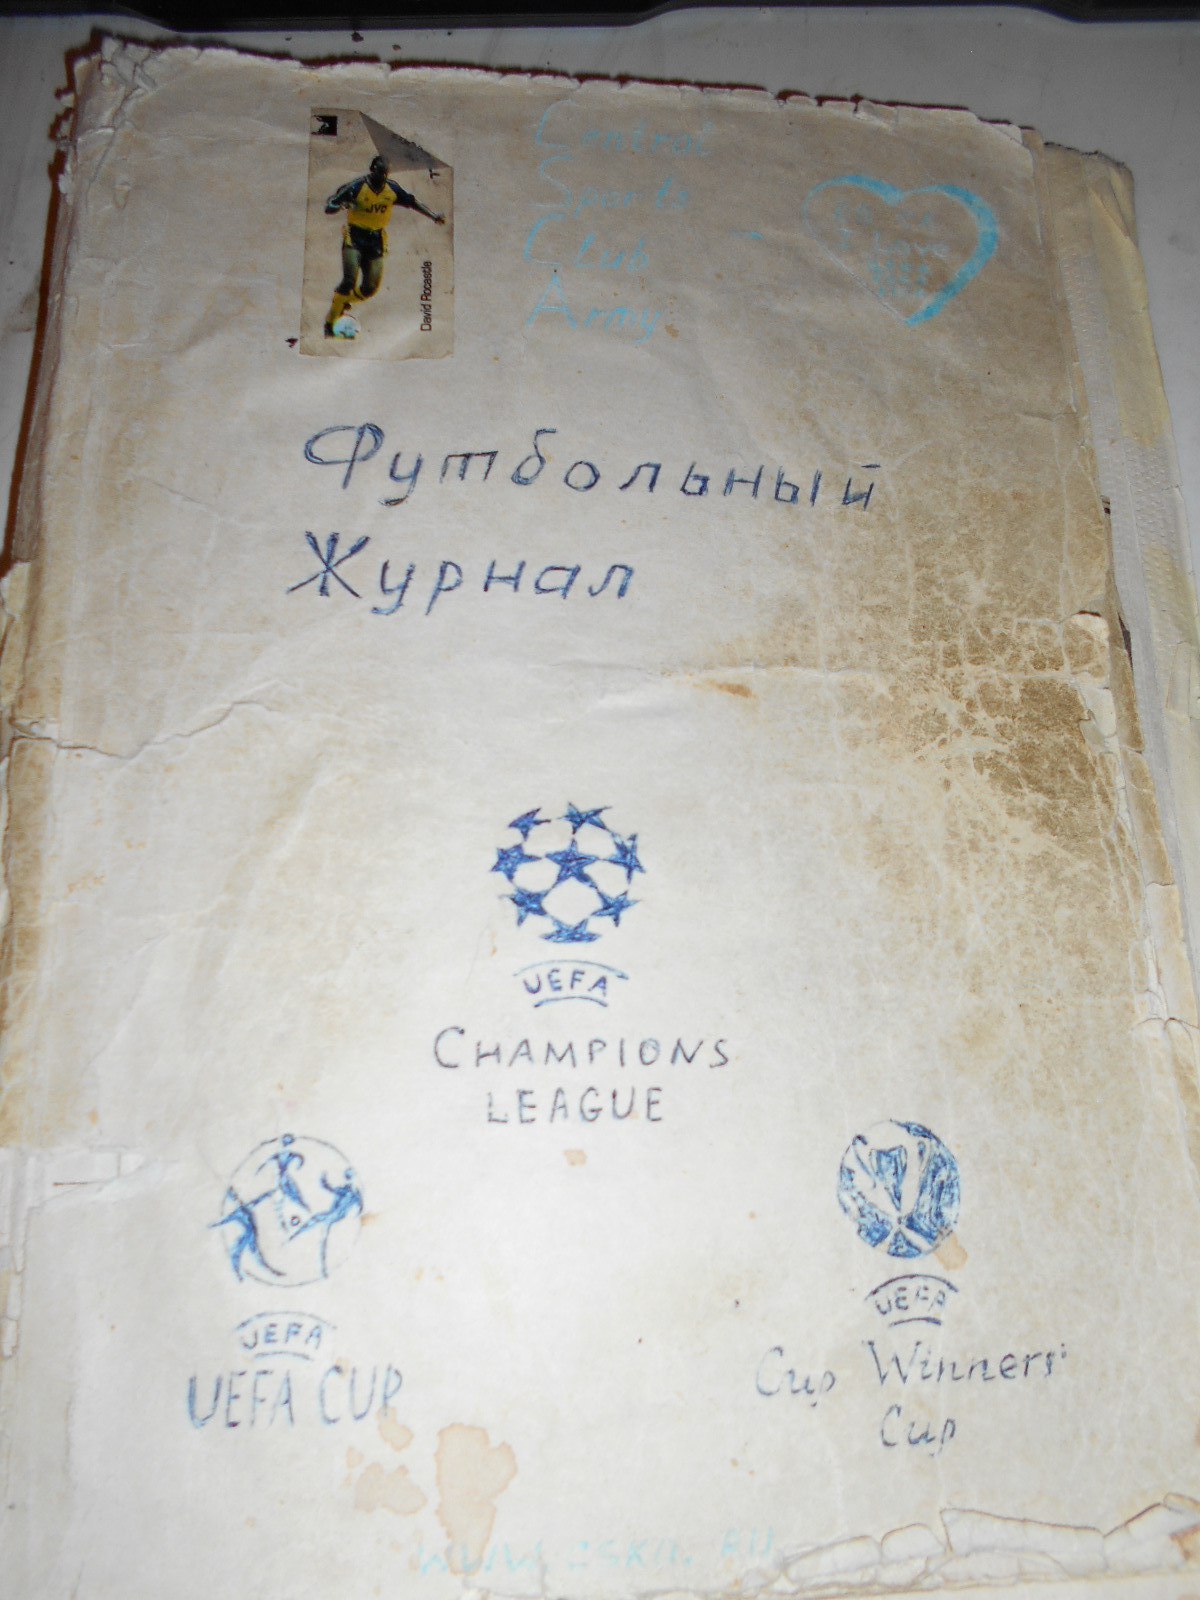 JVC
David Rocastle
Central
Sports
Club
Army
Love
Футбольный
Журнал
UEFA
CHAMPIONS
LEAGUE
UEFA
UEFA CUP
UEFA
Cup Winners'
Cup